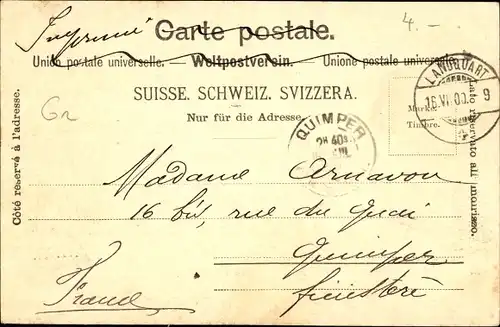 Imprimé
Carte postale.
4.-
Union postale universelle. — Weltpostverein. — Unione postale universale
SUISSE. SCHWEIZ. SVIZZERA.
Nur für die Adresse.
Côté reservé à l'adresse.
Lato riservato all'indirizzo.
Marke.
Timbre.
LANDQUART
16.VI.00. 9
QUIMPER
Gr
Madame Arnavon
16 bis, rue du Quai
Quimper
Finistère
France